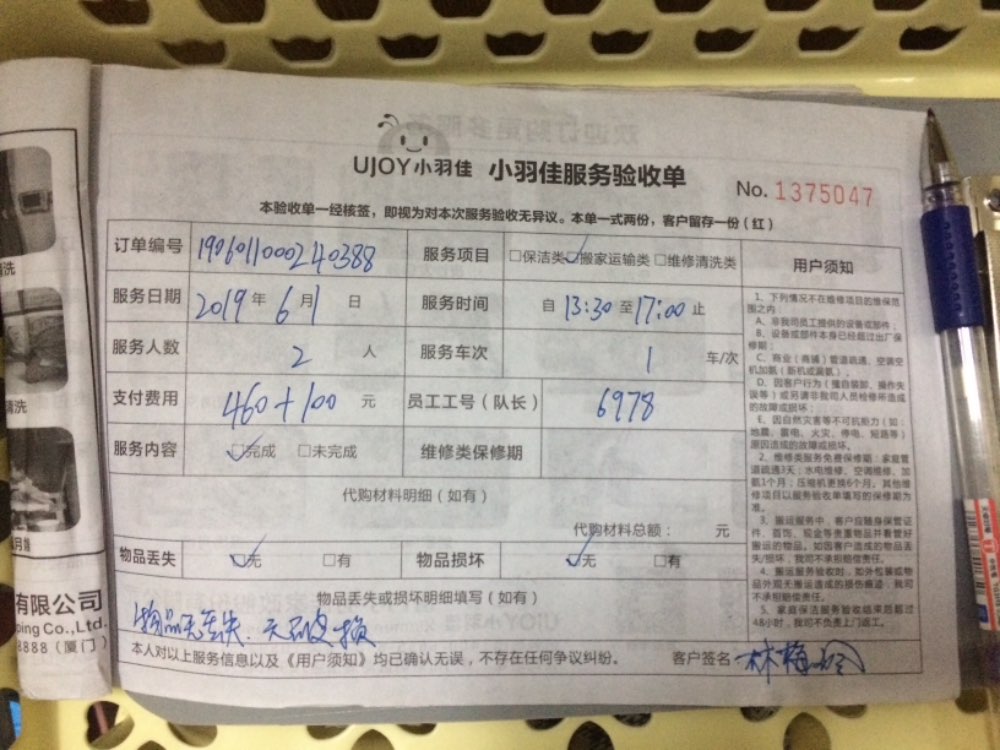 UJOY小羽佳 小羽佳服务验收单
No. 1375047
本验收单一经核签，即视为对本次服务验收无异议。本单一式两份，客户留存一份（红）
订单编号 190601100024038​8 服务项目 □保洁类 ☑搬家运输类 □维修清洗类 用户须知
服务日期 2019年 6月1日 服务时间 自 13:30 至 17:00 止
服务人数 2 人 服务车次 1 车/次
支付费用 460+100 元 员工工号（队长） 6978
服务内容 ☑完成 □未完成 维修类保修期
代购材料明细（如有）
代购材料总额： 元
物品丢失 ☑无 □有 物品损坏 ☑无 □有
物品丢失或损坏明细填写（如有）
物品无丢失．无破损
本人对以上服务信息以及《用户须知》均已确认无误，不存在任何争议纠纷。 客户签名 林梅
1、下列情况不在维修项目的维保范
围之内：
A、非我司员工提供的设备或部件；
B、设备或部件本身已经超过出厂保
修期；
C、商业（商铺）管道疏通、空调空
机加氨（新机或漏氨）。
D、因客户行为（擅自装卸、操作失
误等）或另请非我司人员检修所造成
的故障或损坏；
E、因自然灾害等不可抗能力（如：
地震、雷电、火灾、停电、短路等）
原因造成的故障或损坏。
2、维修类服务免费保修期：家庭管
道疏通3天；水电维修、空调维修、加
氨1个月；压缩机更换6个月。其他维
修项目以服务验收单填写的保修期为
准。
3、搬运服务中，客户应随身保管证
件、首饰、现金等贵重物品并看管好
搬运的物品。如因客户造成的物品丢
失/损坏，我司不承担赔偿责任。
4、搬运服务验收时，如外包装或物
品外观无搬运造成的损伤痕迹，我司
不承担赔偿责任。
5、家庭保洁服务验收结束后超过
48小时，我司不负责上门返工。
清洗
清洗
有限公司
ping Co.,Ltd.
8888（厦门）